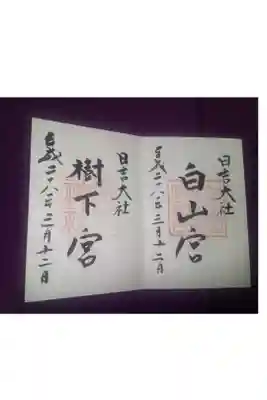 日吉大社
白山宮
平成二十八年三月十二日
日吉大社
樹下宮
平成二十八年三月十二日